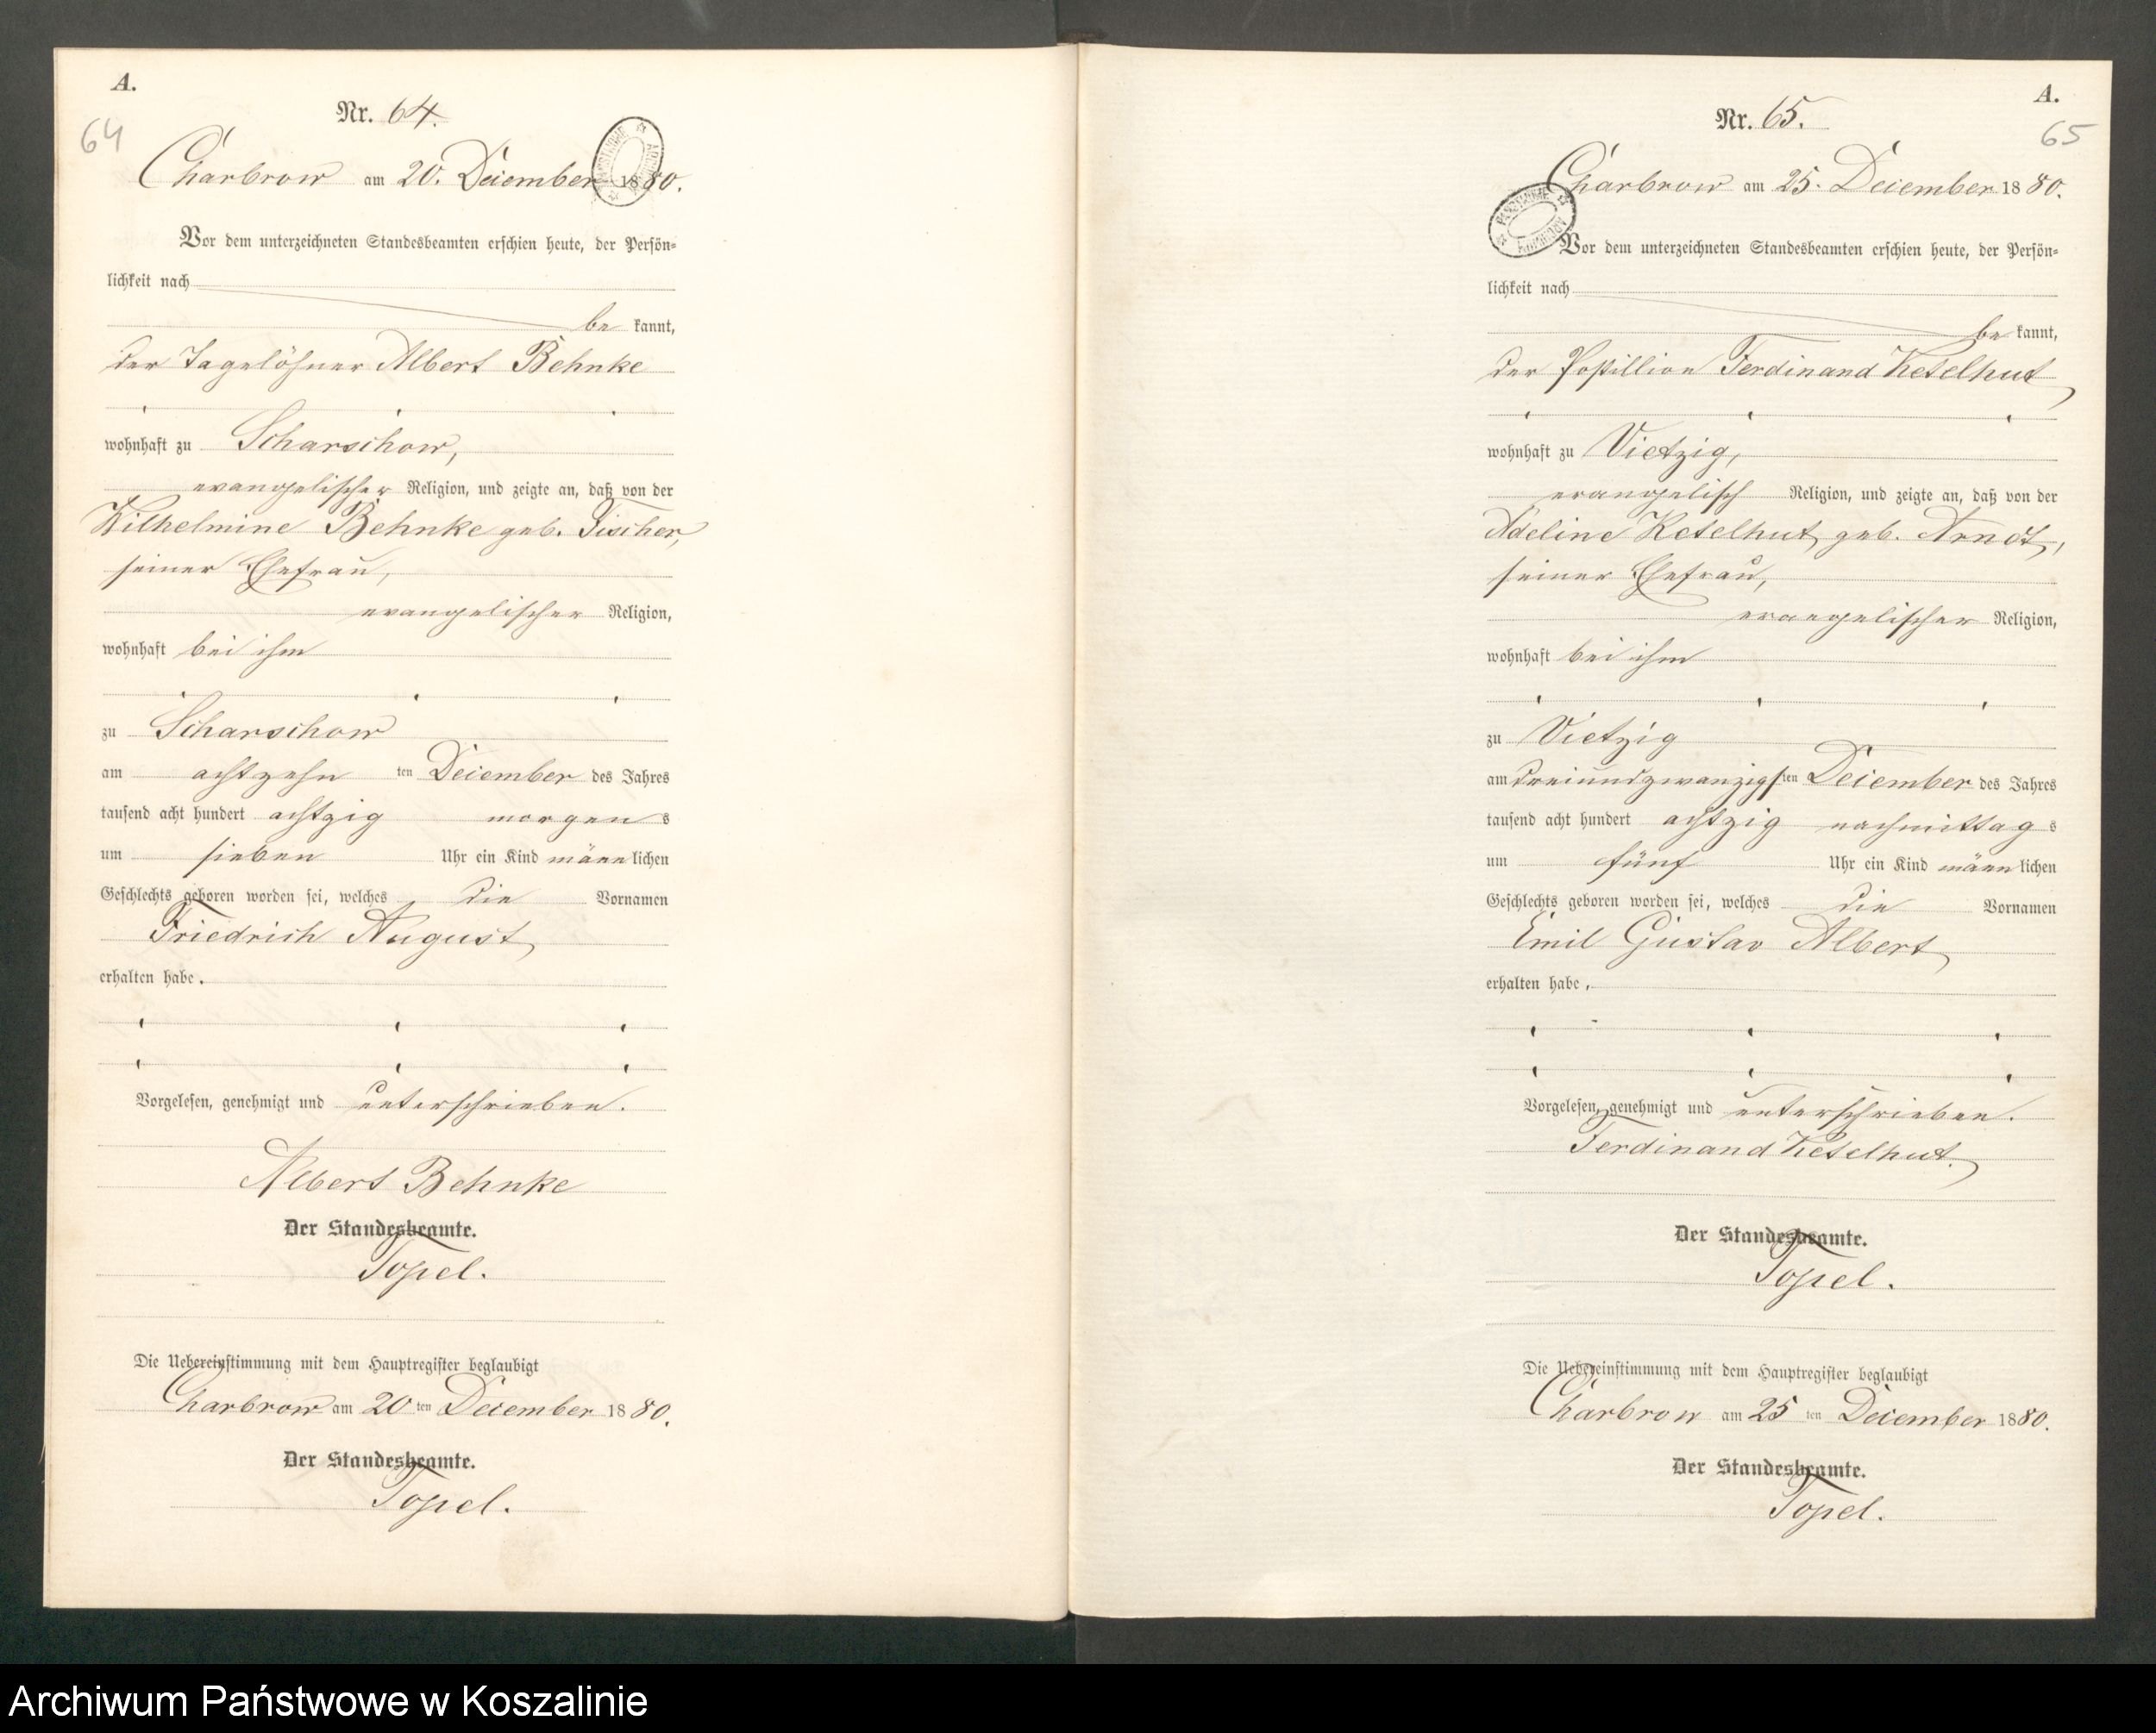 A.
Nr. 64.
64
Charbrow am 20. December 1880.
Vor dem unterzeichneten Standesbeamten erschien heute, der Persön-
lichkeit nach
be kannt,
der Tagelöhner Albert Behnke
wohnhaft zu Scharschow,
evangelischer Religion, und zeigte an, daß von der
Wilhelmine Behnke geb. Fischer,
seiner Ehefrau,
evangelischer Religion,
wohnhaft bei ihm
zu Scharschow
am achtzehn ten December des Jahres
tausend acht hundert achtzig morgens
um sieben Uhr ein Kind männlichen
Geschlechts geboren worden sei, welches die Vornamen
Friedrich August
erhalten habe.
Vorgelesen, genehmigt und unterschrieben.
Albert Behnke
Der Standesbeamte.
Topel.
Die Uebereinstimmung mit dem Hauptregister beglaubigt
Charbrow am 20 ten December 1880.
Der Standesbeamte.
Topel.
A.
Nr. 65.
65
Charbrow am 25. December 1880.
Vor dem unterzeichneten Standesbeamten erschien heute, der Persön-
lichkeit nach
be kannt,
der Postillion Ferdinand Ketelhut
wohnhaft zu Vietzig,
evangelisch Religion, und zeigte an, daß von der
Adeline Ketelhut geb. Arndt,
seiner Ehefrau,
evangelischer Religion,
wohnhaft bei ihm
zu Vietzig
am dreiundzwanzigsten December des Jahres
tausend acht hundert achtzig nachmittags
um fünf Uhr ein Kind männlichen
Geschlechts geboren worden sei, welches die Vornamen
Emil Gustav Albert
erhalten habe.
Vorgelesen, genehmigt und unterschrieben.
Ferdinand Ketelhut.
Der Standesbeamte.
Topel.
Die Uebereinstimmung mit dem Hauptregister beglaubigt
Charbrow am 25 ten December 1880.
Der Standesbeamte.
Topel.
Archiwum Państwowe w Koszalinie